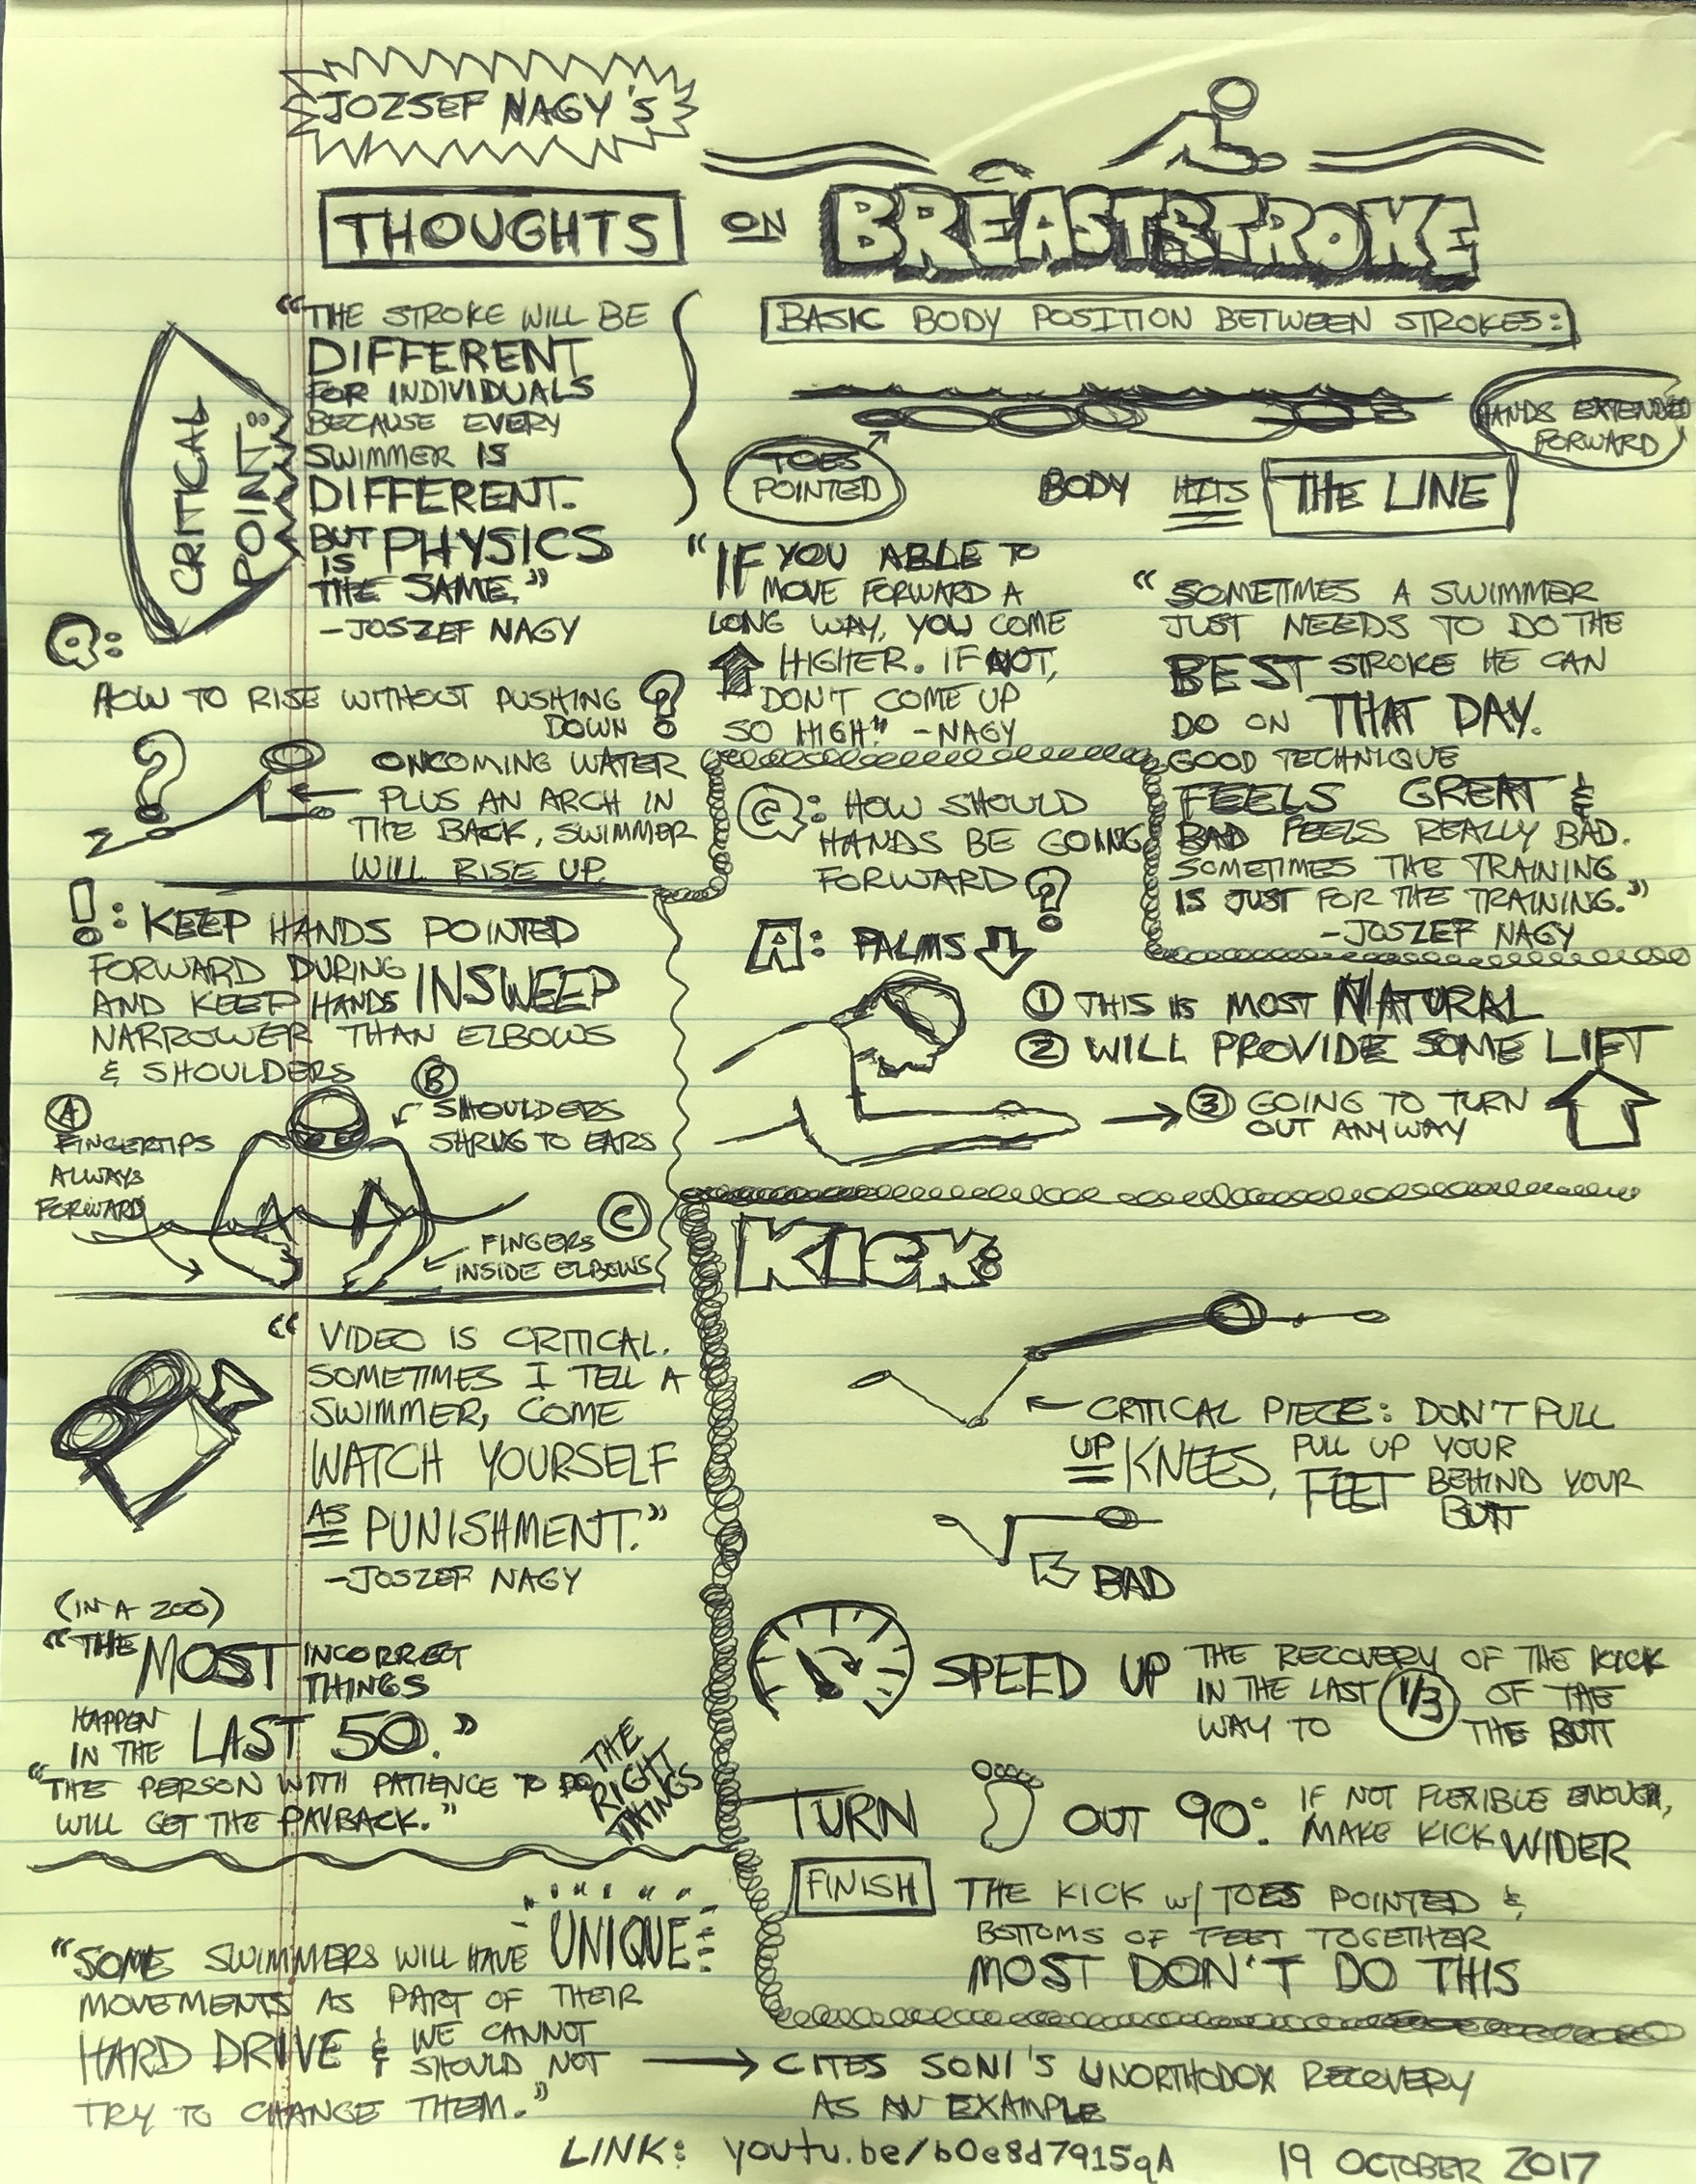 JOZSEF NAGY'S
THOUGHTS ON BREASTSTROKE
CRITICAL
POINT:
"THE STROKE WILL BE
DIFFERENT
FOR INDIVIDUALS
BECAUSE EVERY
SWIMMER IS
DIFFERENT.
BUT PHYSICS
IS
THE SAME."
-JOSZEF NAGY
BASIC BODY POSITION BETWEEN STROKES:
HANDS EXTENDED
FORWARD
TOES
POINTED
BODY HITS THE LINE
"IF YOU ABLE TO
MOVE FORWARD A
LONG WAY, YOU COME
HIGHER. IF NOT,
DON'T COME UP
SO HIGH" -NAGY
"SOMETIMES A SWIMMER
JUST NEEDS TO DO THE
BEST STROKE HE CAN
DO ON THAT DAY.
GOOD TECHNIQUE
FEELS GREAT &
BAD FEELS REALLY BAD.
SOMETIMES THE TRAINING
IS JUST FOR THE TRAINING."
-JOSZEF NAGY
Q:
HOW TO RISE WITHOUT PUSHING
DOWN?
?
ONCOMING WATER
PLUS AN ARCH IN
THE BACK, SWIMMER
WILL RISE UP.
!: KEEP HANDS POINTED
FORWARD DURING INSWEEP
AND KEEP HANDS
NARROWER THAN ELBOWS
& SHOULDERS
A
FINGERTIPS
ALWAYS
FORWARD
B
SHOULDERS
SHRUG TO EARS
C
FINGERS
INSIDE ELBOWS
Q: HOW SHOULD
HANDS BE GOING
FORWARD?
A: PALMS
1 THIS IS MOST NATURAL
2 WILL PROVIDE SOME LIFT
3 GOING TO TURN
OUT ANYWAY
"VIDEO IS CRITICAL.
SOMETIMES I TELL A
SWIMMER, COME
WATCH YOURSELF
AS PUNISHMENT."
-JOSZEF NAGY
(IN A 200)
"THE MOST INCORRECT
THINGS
HAPPEN
IN THE LAST 50."
"THE PERSON WITH PATIENCE TO DO THE RIGHT THINGS
WILL GET THE PAYBACK."
"SOME SWIMMERS WILL HAVE UNIQUE
MOVEMENTS AS PART OF THEIR
HARD DRIVE & WE CANNOT
SHOULD NOT
TRY TO CHANGE THEM."
CITES SONI'S UNORTHODOX RECOVERY
AS AN EXAMPLE
KICK:
CRITICAL PIECE: DON'T PULL
UP KNEES, PULL UP YOUR
FEET BEHIND YOUR
BUTT
BAD
SPEED UP THE RECOVERY OF THE KICK
IN THE LAST 1/3 OF THE
WAY TO THE BUTT
TURN OUT 90°: IF NOT FLEXIBLE ENOUGH,
MAKE KICK WIDER
FINISH THE KICK W/ TOES POINTED &
BOTTOMS OF FEET TOGETHER
MOST DON'T DO THIS
LINK: youtu.be/b0e8d7915qA 19 OCTOBER 2017